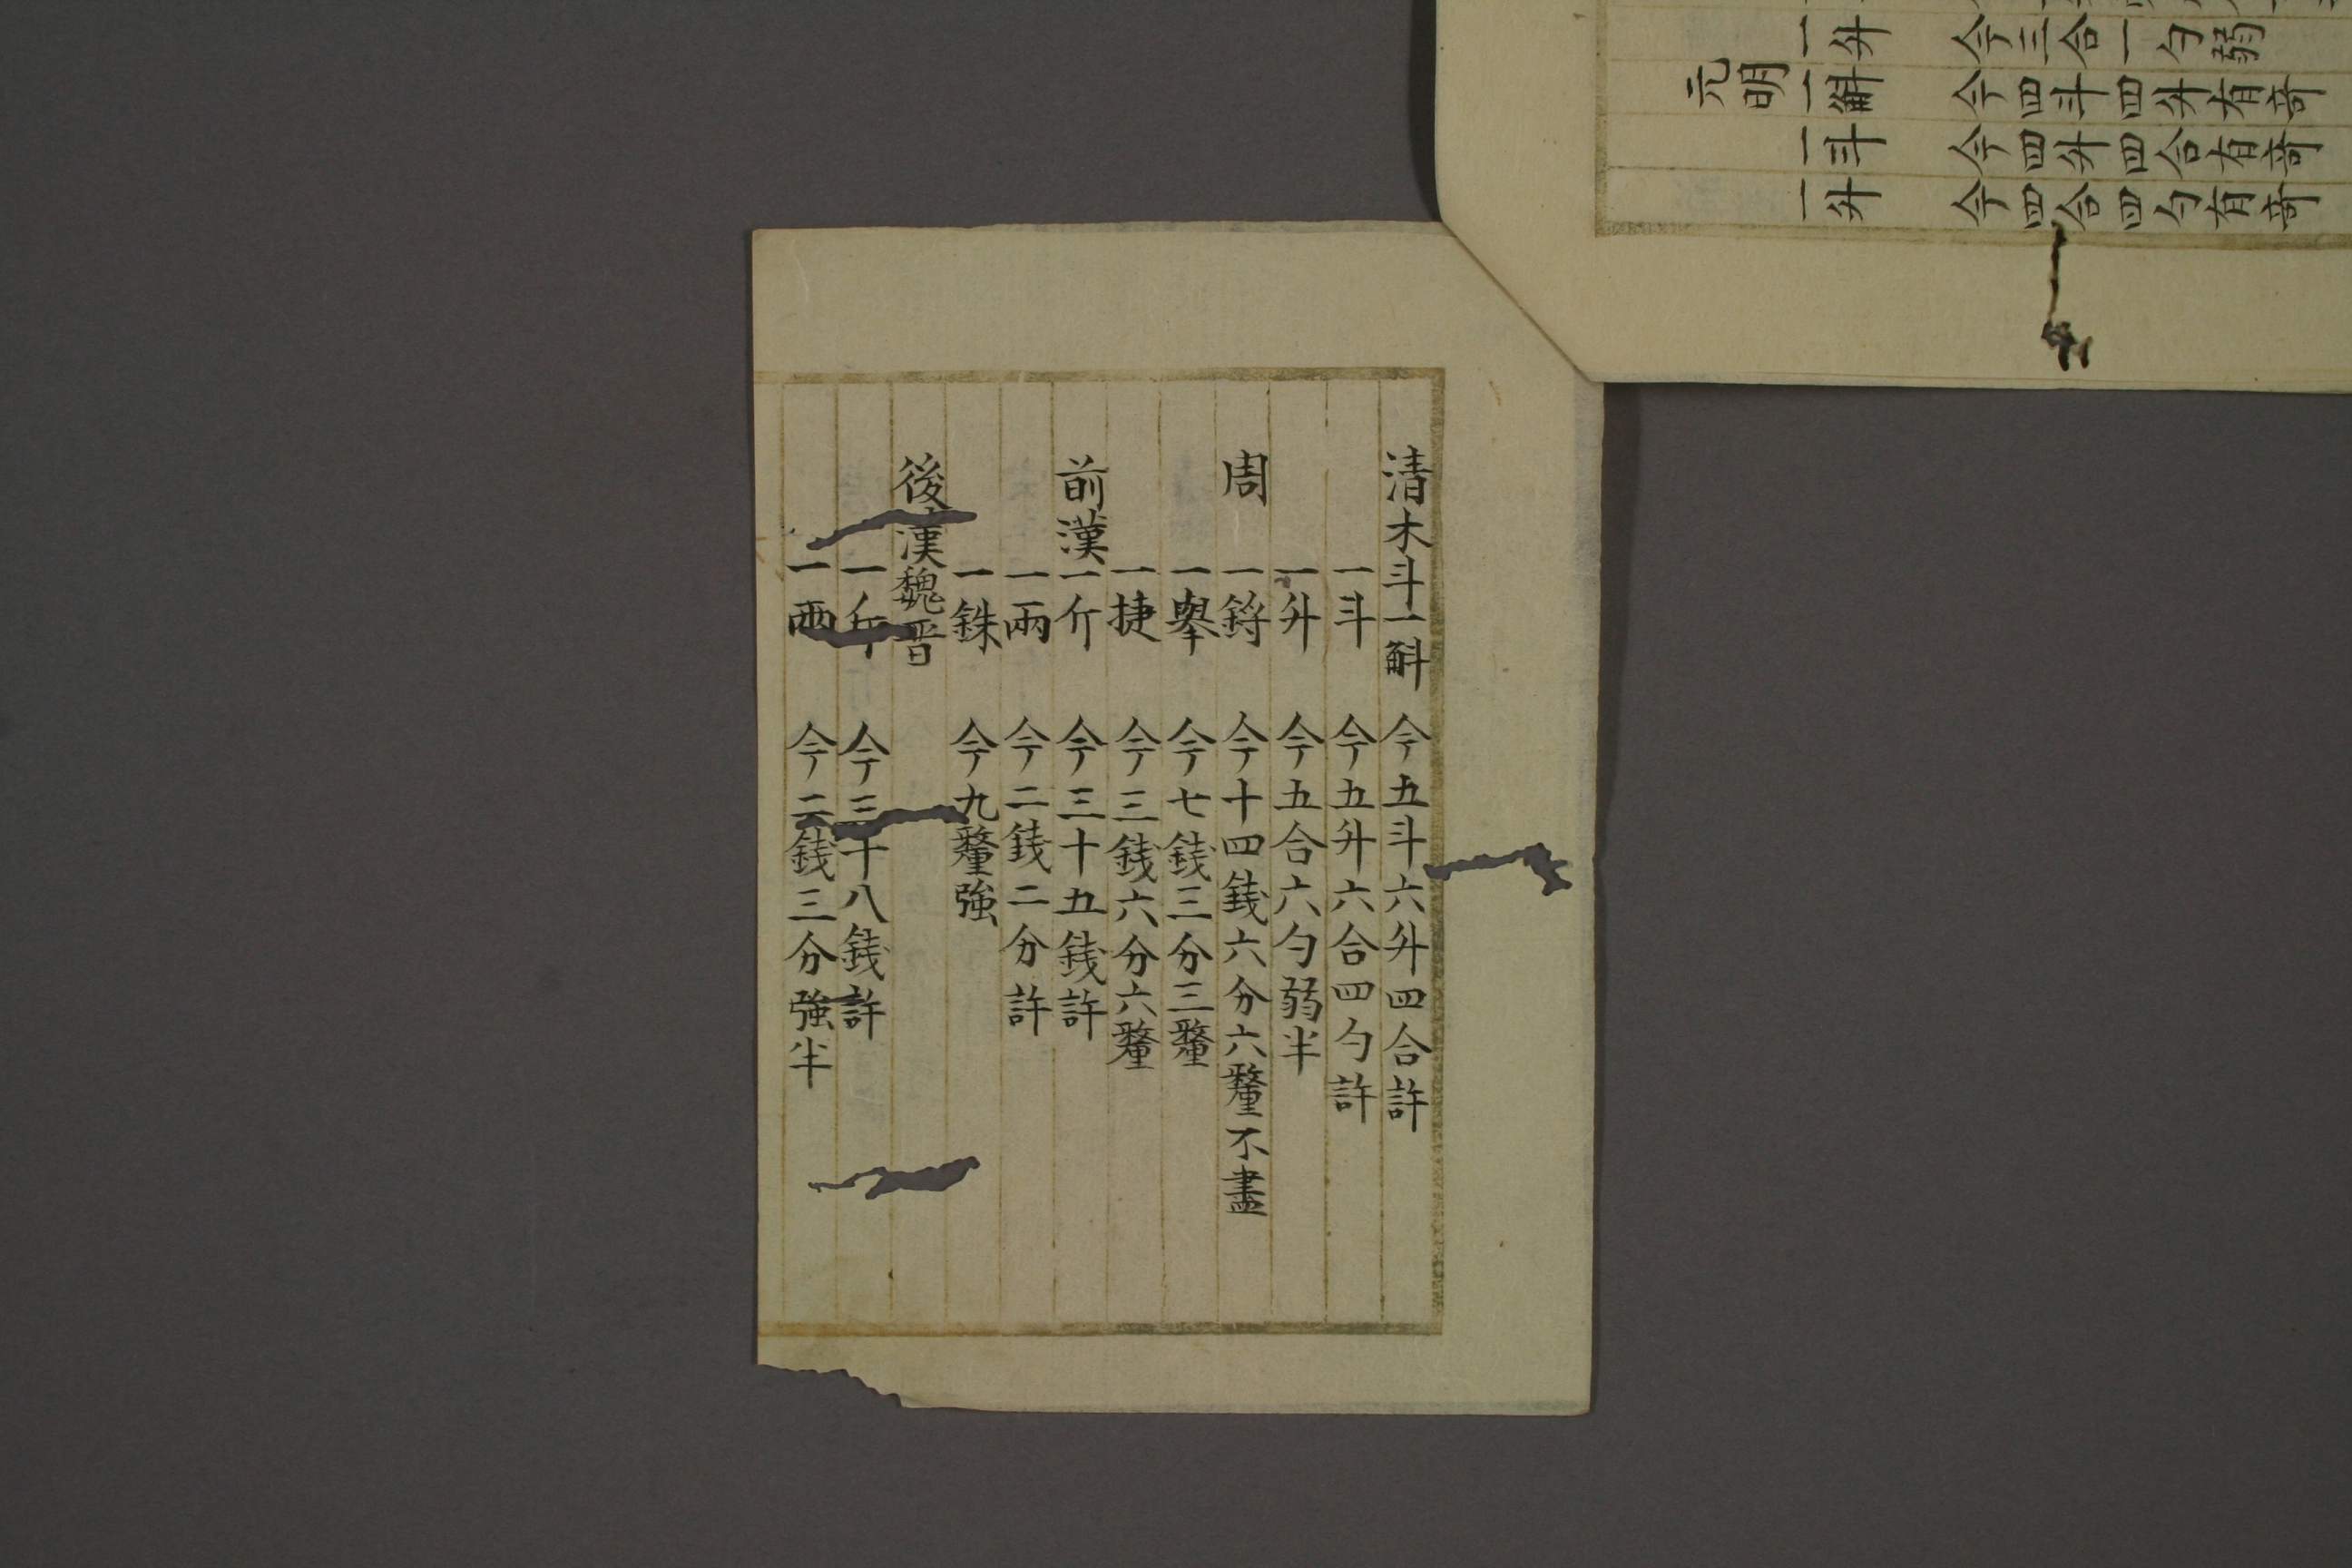 一升 今三合一勺弱
元明 一斛 今四斗四升有奇
一斗 今四升四合有奇
一升 今四合四勺有奇
清木斗一斛 今五斗六升四合許
一斗 今五升六合四勺許
一升 今五合六勺弱半
周 一鋝 今十四銭六分六釐不盡
一擧 今七銭三分三釐
一捷 今三銭六分六釐
前漢一斤 今三十五銭許
一兩 今二銭二分許
一銖 今九釐強
後漢魏晋
一斤 今三十八銭許
一兩 今二銭三分強半